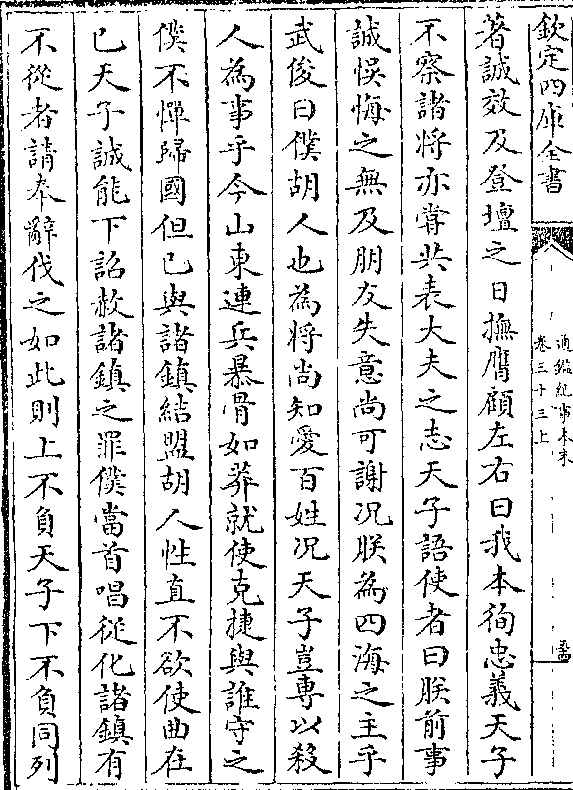 欽定四庫全書
通鑑紀事本末
卷三十三上
著誠效及登壇之日撫膺顧左右曰我本徇忠義天子
不察諸將亦嘗共表大夫之志天子語使者曰朕前事
誠悞悔之無及朋友失意尚可謝况朕為四海之主乎
武俊曰僕胡人也為將尚知愛百姓况天子豈專以殺
人為事乎今山東連兵暴骨如莽就使克捷與誰守之
僕不憚歸國但已與諸鎮結盟胡人性直不欲使曲在
已天子誠能下詔赦諸鎮之罪僕當首唱從化諸鎮有
不從者請奉辭伐之如此則上不負天子下不負同列